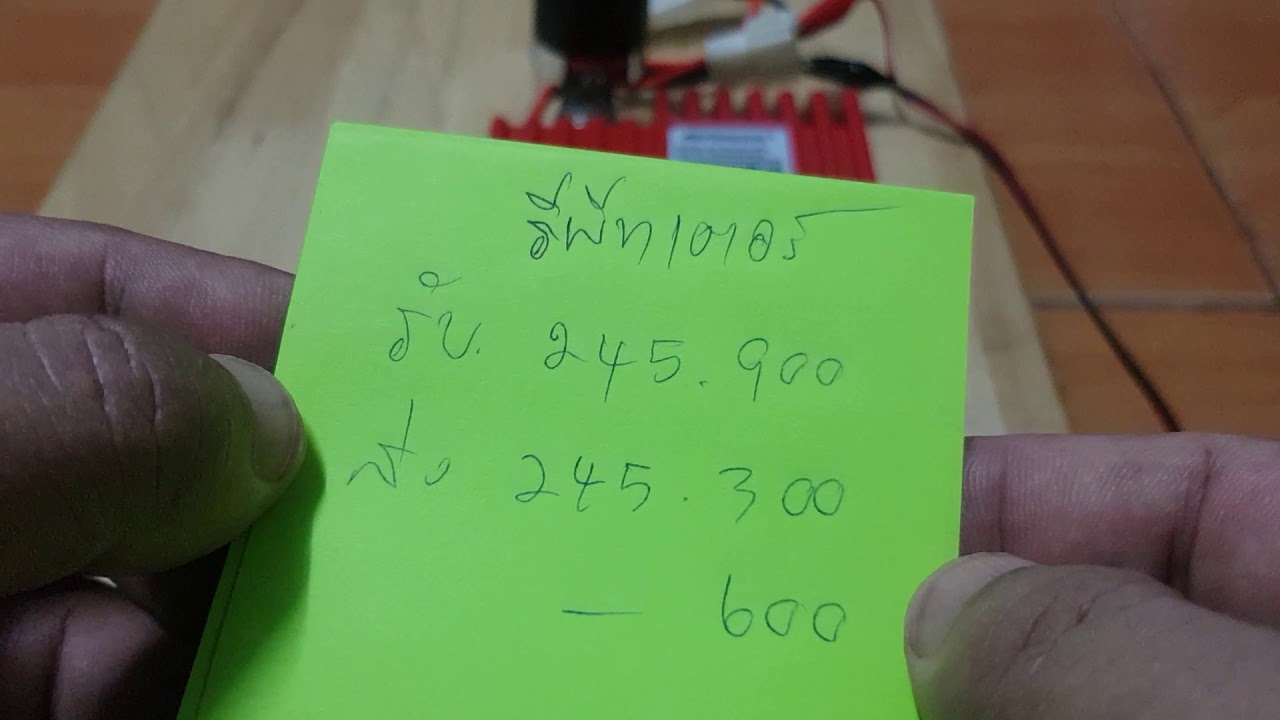 รีพีทเตอร์
รับ. 245.900
ส่ง 245.300
— 600